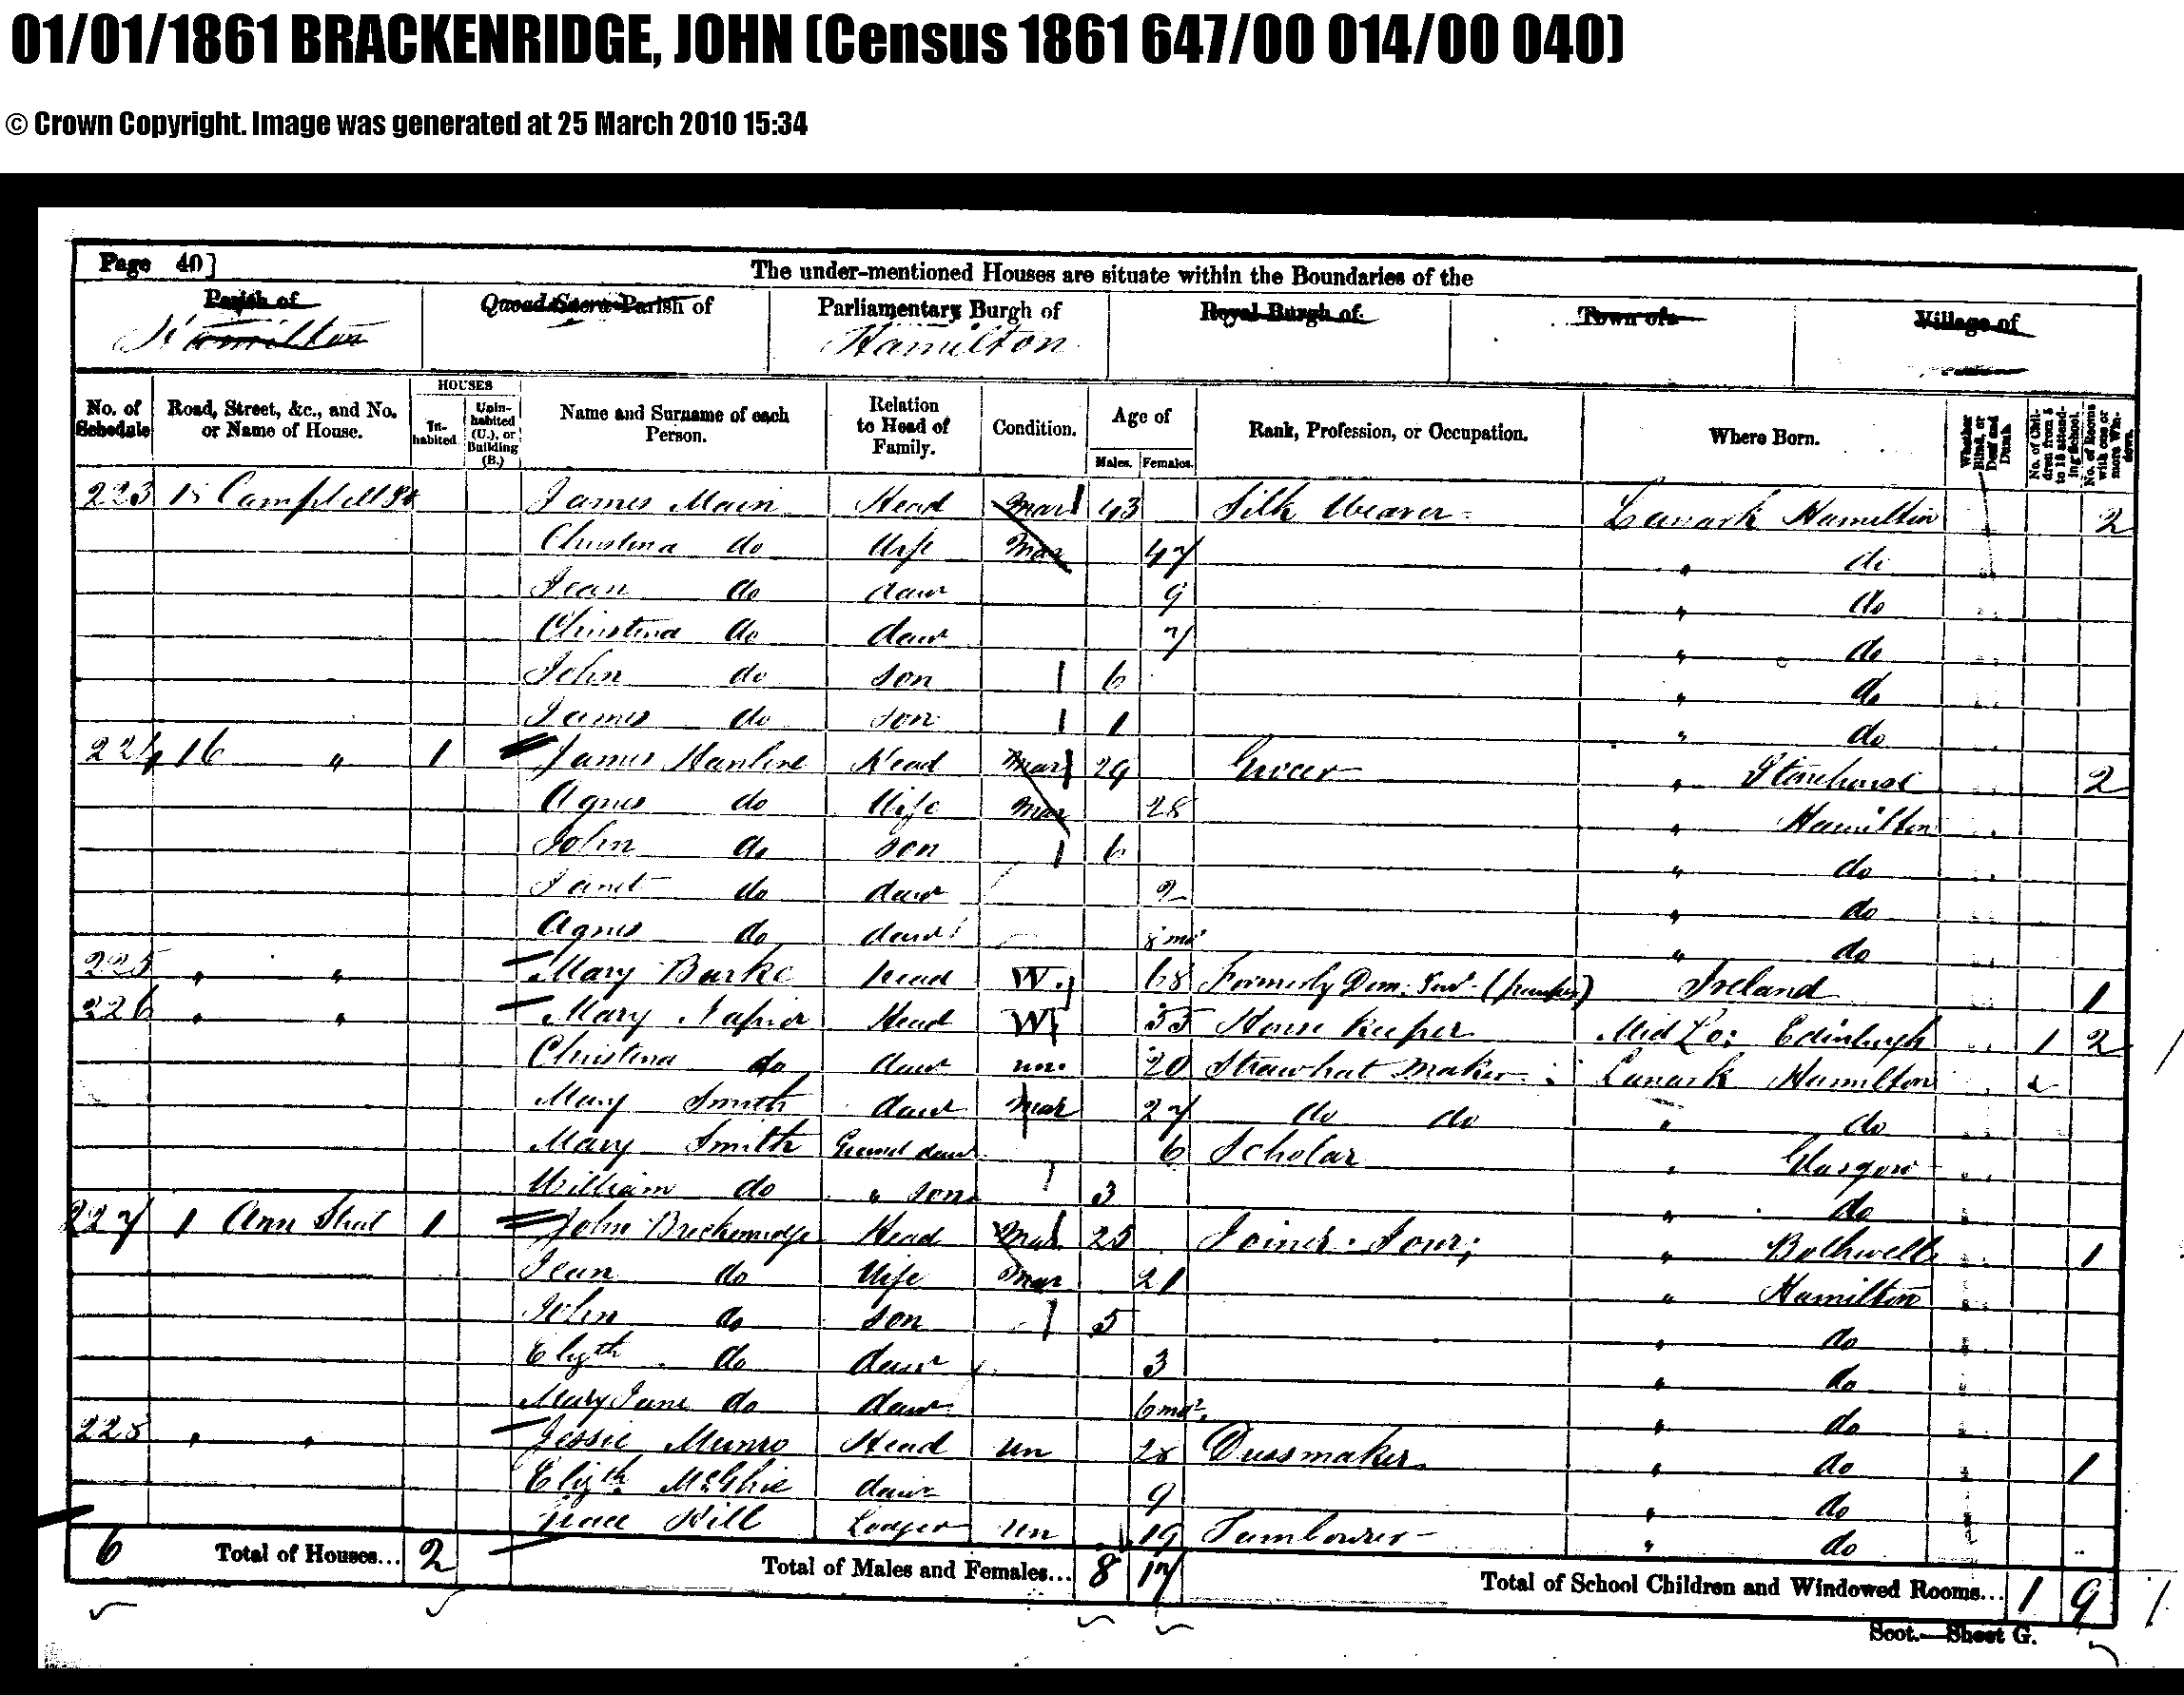 01/01/1861 BRACKENRIDGE, JOHN (Census 1861 647/00 014/00 040)
© Crown Copyright. Image was generated at 25 March 2010 15:34
Page 40]
The under-mentioned Houses are situate within the Boundaries of the
Parish of Quoad Sacra Parish of Parliamentary Burgh of Royal Burgh of Town of Village of
Hamilton Hamilton
No. of Schedule Road, Street, &c., and No. or Name of House. HOUSES Inhabited. Uninhabited (U.), or Building (B.) Name and Surname of each Person. Relation to Head of Family. Condition. Age of Males. Females. Rank, Profession, or Occupation. Where Born. Whether Blind, or Deaf and Dumb. No. of Children from 5 to 15 attending School. No. of Rooms with one or more Window.
223 15 Campbell St James Main Head Mar 43 Silk Weaver Lanark Hamilton 2
Christina do Wife Mar 47 " do
Jean do daur 9 " do
Christina do daur 7 " do
John do son 6 " do
James do son 1 " do
224 16 " 1 James Hanline Head Mar 29 Grocer " Stonehouse 2
Agnes do Wife Mar 28 " Hamilton
John do son 6 " do
Janet do daur 2 " do
Agnes do daur 8 mo " do
225 " " Mary Burke head W. 68 Formerly Dom. Serv. Ireland 1
226 " " Mary Napier Head W 55 House Keeper Mid Lo: Edinburgh 1 2
Christina do daur un. 20 Strawhat Maker Lanark Hamilton
Mary Smith daur Mar 27 do do " do
Mary Smith Grand daur 6 Scholar " Glasgow
William do " son 3 " do
227 1 Ann Street 1 John Breckenridge Head Mar 25 Joiner Jour; " Bothwell 1
Jean do Wife Mar 21 " Hamilton
John do son 5 " do
Elizth do daur 3 " do
Mary Jane do daur 6 mos " do
228 " " Jessie Munro Head Un 28 Dressmaker " do 1
Elizth McGhie daur 9 " do
Grace Hill Lodger Un 19 Tambourer " do
6 Total of Houses... 2 Total of Males and Females... 8 17 Total of School Children and Windowed Rooms... 1 9
Scot.—Sheet G.